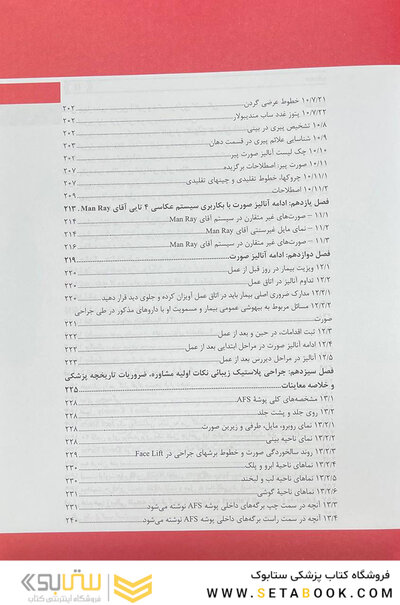 ۱۰/۷/۲۱ خطوط عرضی گردن ۲۰۲
۱۰/۷/۲۲ پتوز غدد ساب مندیبولار ۲۰۲
۱۰/۸ تشخیص پیری در بینی ۲۰۲
۱۰/۹ شناسایی علائم پیری در قسمت دهان ۲۰۳
۱۰/۱۰ چک لیست آنالیز صورت پیر
۱۰/۱۱ صورت پیر: اصطلاحات برگزیده ۲۰۷
۱۰/۱۱/۱ چروکها، خطوط تقلیدی و چینهای تقلیدی ۲۰۷
۱۰/۱۱/۲ اصطلاحات ۲۰۹
فصل یازدهم: ادامه آنالیز صورت با بکاربری سیستم عکاسی ۴ تایی آقای Man Ray ۲۱۳
۱۱/۱ – صورت‌های غیر متقارن در سیستم آقای Man Ray ۲۱۴
۱۱/۲ – نمای مایل غیرسنتی آقای Man Ray ۲۱۴
۱۱/۳ – صورت‌های غیر متقارن در سیستم آقای Man Ray ۲۱۶
فصل دوازدهم: ادامه آنالیز صورت ۲۱۹
۱۲/۱ ویزیت بیمار در روز قبل از عمل ۲۲۰
۱۲/۲ تداوم آنالیز در اتاق عمل ۲۲۰
۱۲/۲/۱ مدارک ضروری اصلی بیمار باید در اتاق عمل آویزان کرده و جلوی دید قرار دهید ۲۲۰
۱۲/۲/۲ مسائل مربوط به بیهوشی عمومی بیمار و مسمومیت او با داروهای مذکور در طی جراحی
صورت ۲۲۱
۱۲/۳ ثبت اقدامات، در حین و بعد از عمل ۲۲۲
۱۲/۴ ادامه آنالیز صورت در مراحل ابتدایی بعد از عمل ۲۲۲
۱۲/۵ آنالیز در مراحل دیررس بعد از عمل ۲۲۳
فصل سیزدهم: جراحی پلاستیک زیبائی نکات اولیه مشاوره، ضروریات تاریخچه پزشکی
و خلاصه معاینات ۲۲۵
۱۳/۱ مشخصه‌های کلی پوشهٔ AFS ۲۲۸
۱۳/۲ روی جلد و پشت جلد ۲۲۸
۱۳/۲/۱ نمای روبرو، مایل، طرفی و زیرین صورت ۲۲۸
۱۳/۲/۲ نمای ناحیه بینی ۲۲۸
۱۳/۲/۳ روند سالخوردگی صورت و خطوط برشهای جراحی در Face Lift ۲۲۹
۱۳/۲/۴ نماهای ناحیهٔ ابرو و پلک ۲۳۰
۱۳/۲/۵ نماهای ناحیهٔ لب و لبخند ۲۳۰
۱۳/۲/۶ نماهای ناحیهٔ گوشی ۲۳۱
۱۳/۳ آنچه در سمت چپ برگه‌های داخلی پوشه AFS نوشته می‌شود ۲۳۱
۱۳/۴ آنچه در سمت راست برگه‌های داخلی پوشه AFS نوشته می‌شود ۲۴۰
فروشگاه کتاب پزشکی ستابوک
WWW.SETABOOK.COM
ستابوک
فروشگاه اینترنتی کتاب